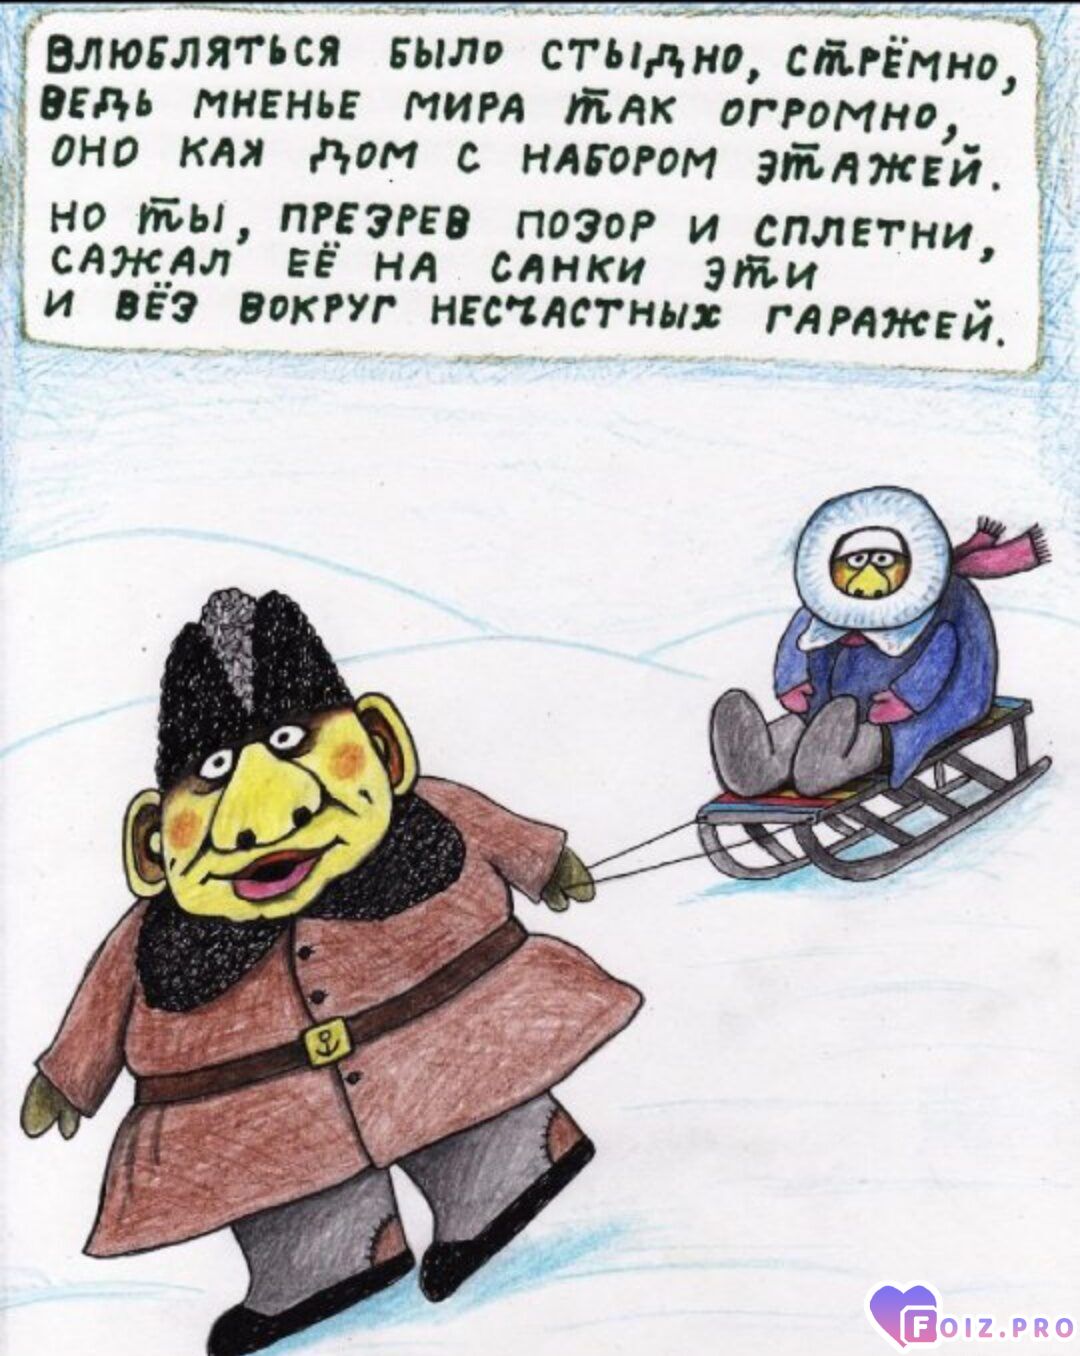 ВЛЮБЛЯТЬСЯ БЫЛО СТЫДНО, СТРЁМНО,
ВЕДЬ МНЕНЬЕ МИРА ТАК ОГРОМНО,
ОНО КАК ДОМ С НАБОРОМ ЭТАЖЕЙ.
НО ТЫ, ПРЕЗРЕВ ПОЗОР И СПЛЕТНИ,
САЖАЛ ЕЁ НА САНКИ ЭТИ
И ВЁЗ ВОКРУГ НЕСЧАСТНЫХ ГАРАЖЕЙ.
FOIZ.PRO